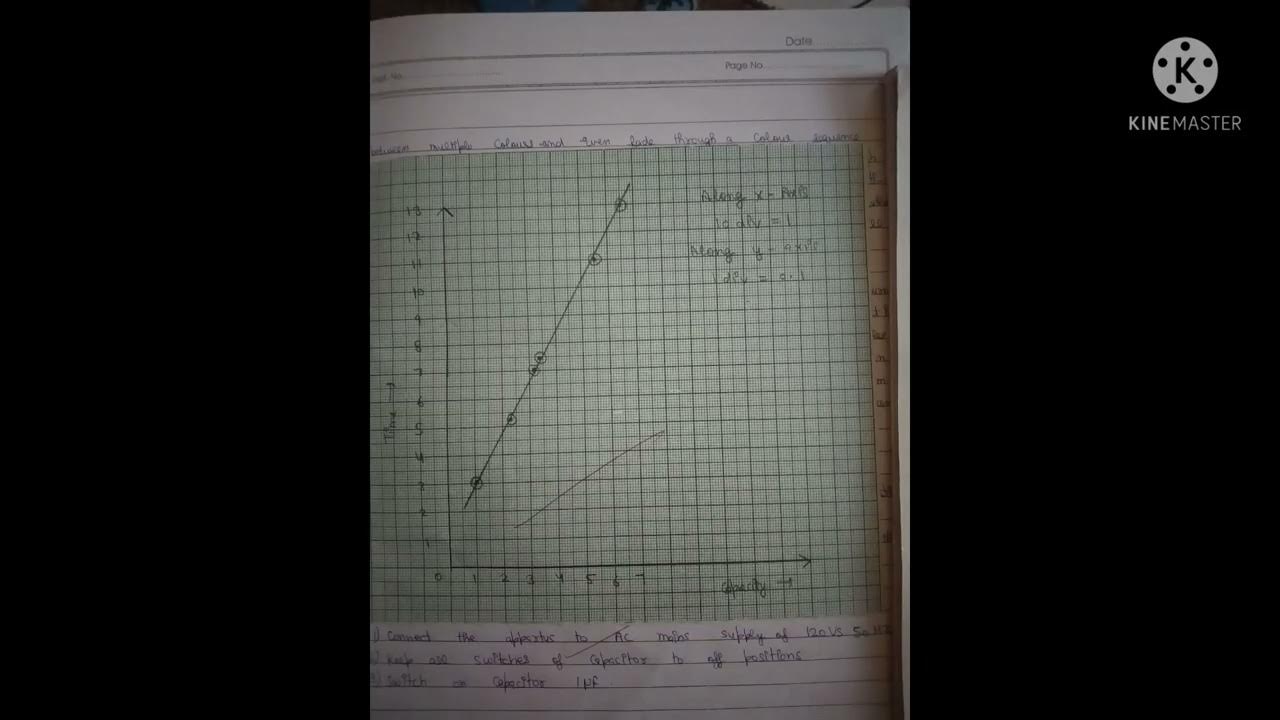 Date
Page No.
KINEMASTER
between multiple Colours and even fade through a Colour sequence
Along x - Axis
10 div = 1
Along y - axis
1 div = 0.1
13
12
11
10
9
8
7
6
5
4
3
2
1
Time →
0 1 2 3 4 5 6 7
Capacity →
1) Connect the appartus to AC mains supply of 120 VS 50 HZ
Keep all switches of capacitor to off positions
Switch on capacitor 1 μf